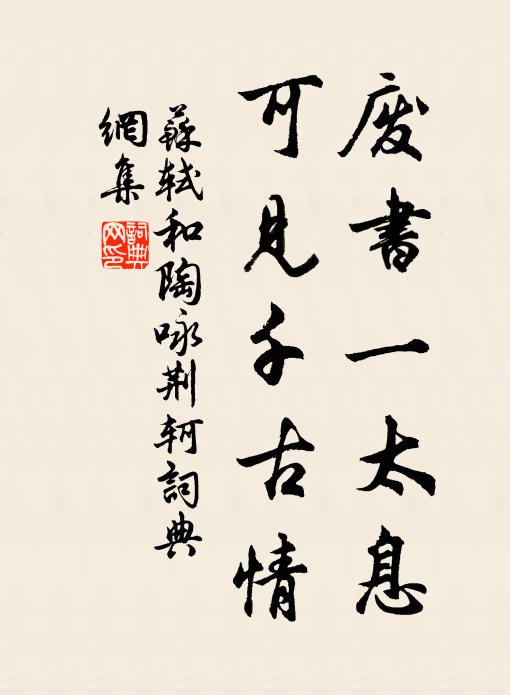 废书一太息
可见千古情
蘇轼和陶咏荆轲詞典
網集
詞典
网印